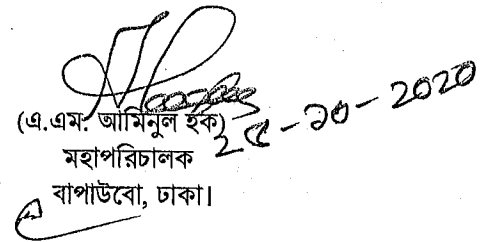 (এ.এম. আমিনুল হক)
২৫-১০-২০২০
মহাপরিচালক
বাপাউবো, ঢাকা।